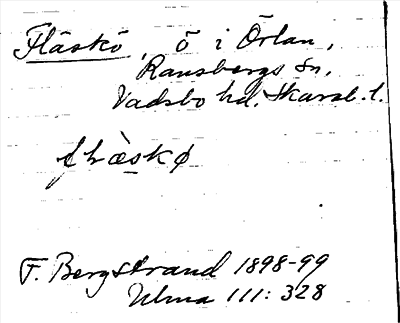 Fläskö, ö i Örlan,
Ransbergs Sn,
Vadsbo hd. Skarab. l.
F. Bergstrand 1898-99
Ulma 111: 328